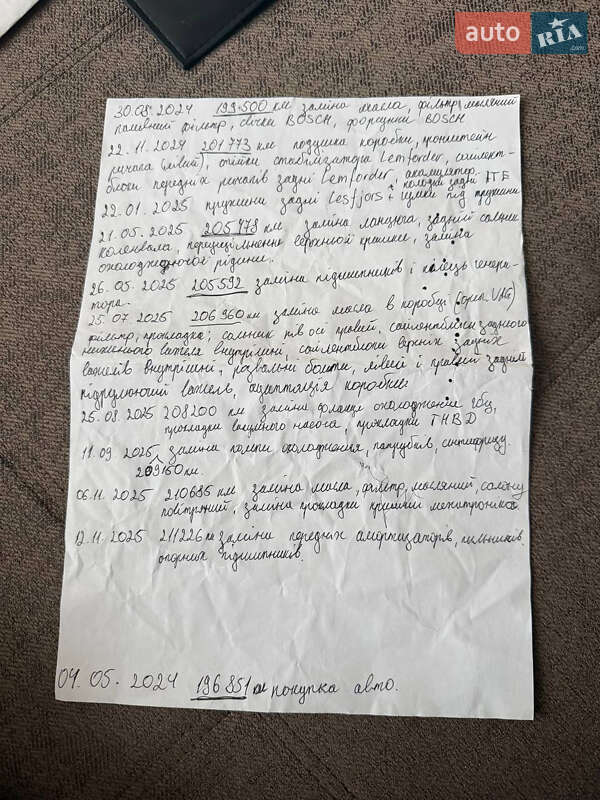 auto RIA
30.08.2024 199.500 км заміна масла, фільтр масляний
паливний фільтр, свічки BOSCH, форсунки BOSCH
22.11.2024 201773 км подушка коробки, кронштейн
ричага (лівий), стійки стабілізатора Lemforder, сайлент-
блоки передніх ричагів задні Lemforder, акамулятор,
колодки задні ATE
22.01.2025 пружини задні Lesjfors + гумки під пружини
21.05.2025 205478 км заміна ланцюга, задній сальник
коленвала, перещільнення верхньої кришки, заміна
охолоджуючої рідини.
26.05.2025 205592 заміна підшипників і кілець генера-
тора.
25.07.2025 206960 км заміна масла в коробці (ориг. VAG)
фільтр, прокладка; сальник пів осі правий, сайлентблоки заднього
нижнього важеля внутрішні, сайлентблоки верхніх задніх
важелів внутрішні, розвальні болти, лівий і правий задній
підрулюючий важель, адаптація коробки
25.08.2025 208200 км заміна фланця охолодження гбц,
прокладки вакумного насоса, прокладки ТНВД
11.09.2025 заміна помпи охолодження, патрубків, антифризу.
209160 км.
06.11.2025 210685 км заміна масла, фільтр, масляний, салону
повітряний, заміна прокладки кришки мехатроніка
12.11.2025 211226 км заміна передніх амортизаторів, пильників,
опорних підшипників.
04.05.2024 196851 км покупка авто.